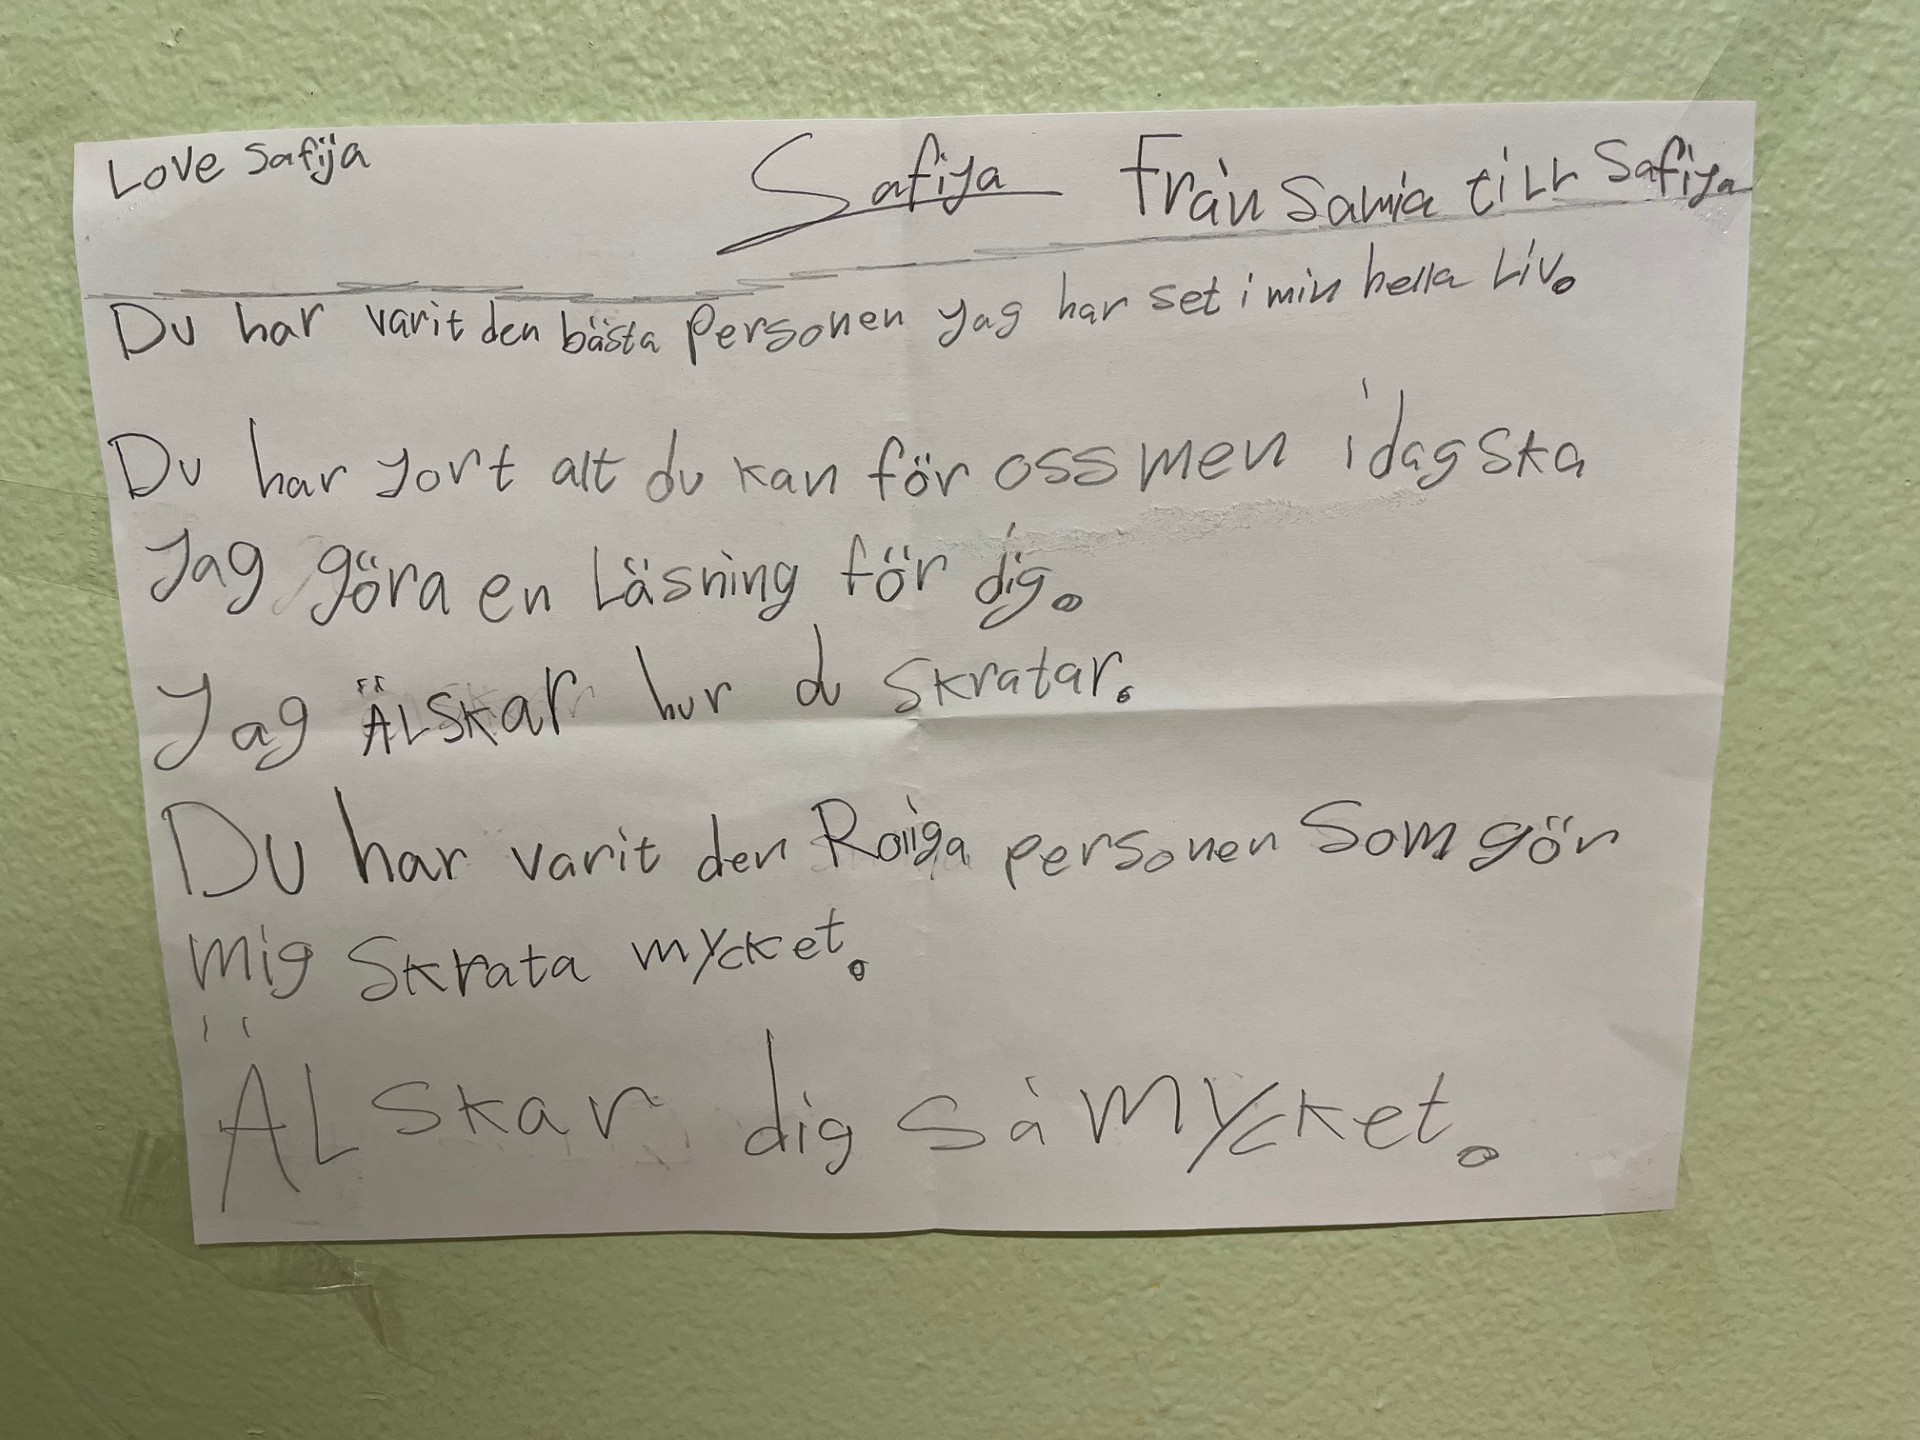 Love Safija
Safiya Från Samia till Safiya
Du har varit den bästa Personen Jag har set i min hella Liv.
Du har Jort alt du kan för oss men idag ska
Jag göra en Läsning för dig.
Jag ÄLSKar hur du skratar.
Du har varit den Roliga personen Som gör
mig Skrata mycket.
ÄLskar dig så mycket.